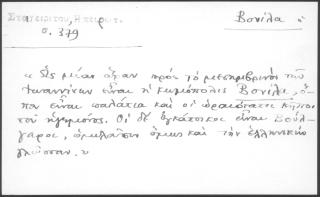 Σταγειρίτου, Ηπειρωτ.
Βονίλα
σ. 379
« Εἰς μίαν ὥραν πρὸς τὸ μεσημβρινὸν τῶν
Ἰωαννίνων εἶναι ἡ κωμόπολις Βονίλα, ὅ-
που εἶναι παλάτια καὶ οἱ ὡραιότατοι κῆποι
τοῦ ἡγεμόνος. Οἱ δὲ ἐγκάτοικοι εἶναι Βούλ-
γαροι, ὁμιλοῦσιν ὅμως καὶ τὴν ἑλληνικὴν
γλῶσσαν. »